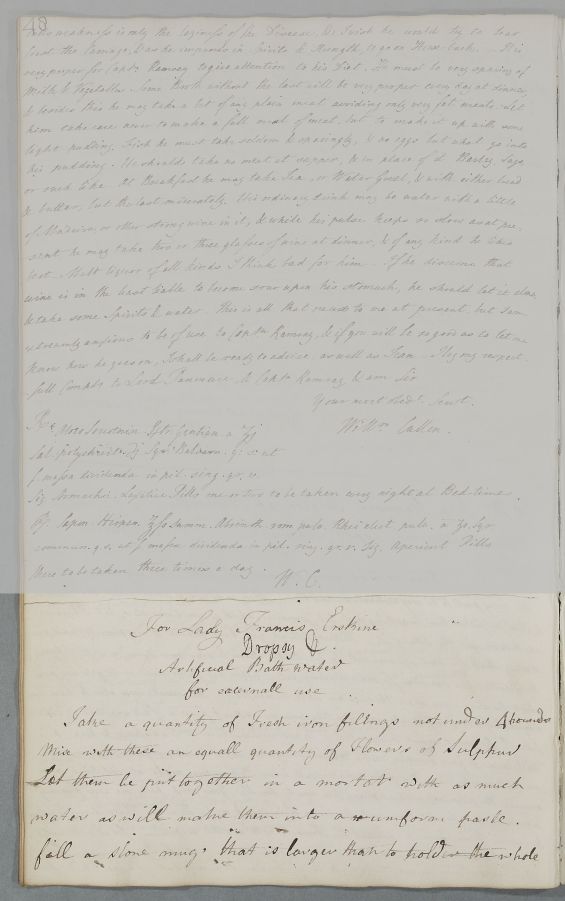 48
weakness is only the beginning of his Disease. I wish he would try to bear
at least the Carriage, & as he improves in Spirits & Strength, to go on Horseback. His
very proper for Captn Ramsay to give attention to his Diet. He must be very sparing of
Milk & Vegetables. Some Broth without the last will be very proper every day at dinner,
& besides this he may take a bit of any plain meat avoiding only very fat meats. Let
him take care never to make a full meal of meat, but to make it up with some
light pudding. Fish he must take seldom & sparingly, & no eggs but what go into
his pudding. He should take no meat at supper, & in place of it Barley, Sago
or such like. At Breakfast he may take Tea, or Water Gruel, & with either bread
& butter, but the last moderately. His ordinary drink may be water with a little
of Madeira, or other strong wine in it, & while his pulse keeps so slow as at pre-
sent he may take two or three glasses of wine at dinner, & of any kind he likes
best. Malt liquor of all kinds I think bad for him. If he discerns that
wine is in the least liable to become sour upon his stomach, he should let it alone
& take some Spirits & water. this is all that occurs to me at present, but I am
extreamly anxious to be of use to Captn Ramsay, & if you will be so good as to let me
know how he goes on, I shall be ready to advise as well as I can. My respect-
full Compts to Lord Panmure & Captn Ramsay & am Sir
Your most Obedt. Servt.
Willm Cullen.
Rx Gentian a ʒj
Sal. polychrest. ʒj Syr. Balsam. q. s. ut
f. massa dividenda in pil. sing. gr. v.
Sig. Pills one or two to be taken every night at Bed-time.
Rx. Sapon Hispan. ʒſs Summ. Absinth. rom pulv. Rhei elect. pulv. a ʒj. Syr
commun. q. s. ut f. massa dividenda in pil. sing. gr. v. Sig. Aperient Pills
three to be taken three times a day.
W. C.
For Lady Francis Erskine
Dropsy
Artificial Bath water
for externall use
Take a quantity of Fresh iron filings not under 4 pounds
Mix with these an equall quantity of Flowers of Sulphur
Let them be put together in a mortot with as much
water as will make them into a uniform paste.
fill a stone mug that is larger than to hold the whole